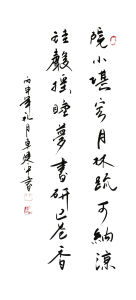 院小堪容月林疏可納涼
聲搖睡夢書研已香
丙申年月書